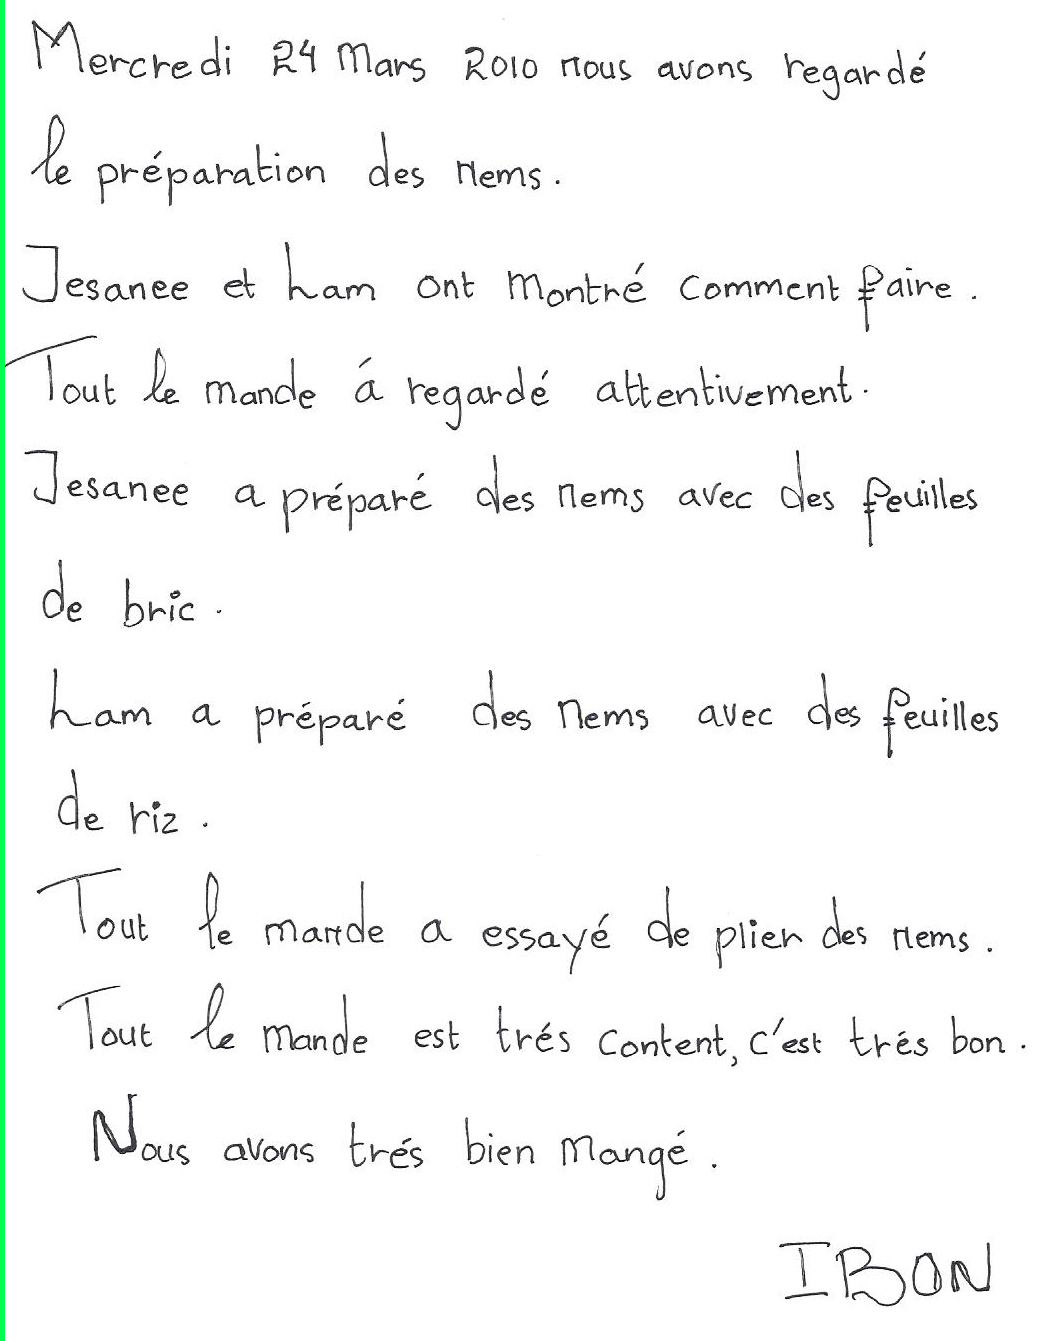 Mercredi 24 Mars 2010 nous avons regardé
le préparation des nems.
Jesanee et ham ont montré comment faire.
Tout le mande á regardé attentivement.
Jesanee a préparé des nems avec des feuilles
de bric.
ham a préparé des nems avec des feuilles
de riz.
Tout le mande a essayé de plier des nems.
Tout le mande est trés content, c'est trés bon.
Nous avons trés bien mangé.
IBON